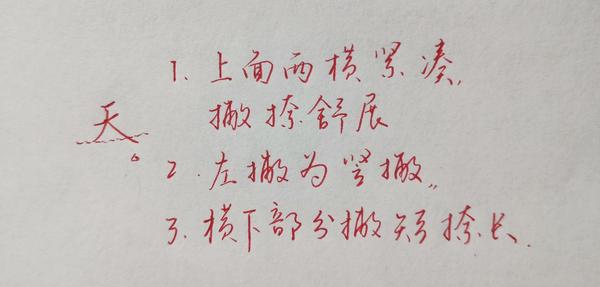 天
1. 上面两横紧凑,
撇捺舒展
2. 左撇为竖撇,,
3. 横下部分撇短捺长.